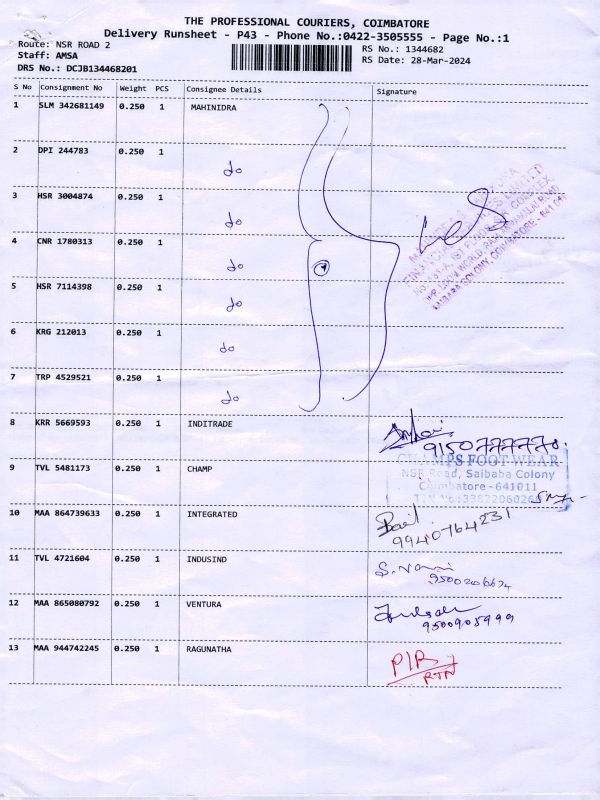 THE PROFESSIONAL COURIERS, COIMBATORE
Delivery Runsheet - P43 - Phone No.:0422-3505555 - Page No.:1
Route: NSR ROAD 2 RS No.: 1344682
Staff: AMSA RS Date: 28-Mar-2024
DRS No.: DCJB134468201
S No Consignment No Weight PCS Consignee Details Signature
1 SLM 342681149 0.250 1 MAHINIDRA
2 DPI 244783 0.250 1 do
3 HSR 3004874 0.250 1 do
4 CNR 1780313 0.250 1 do 7
5 HSR 7114398 0.250 1 do
6 KRG 212013 0.250 1 do
7 TRP 4529521 0.250 1 do
8 KRR 5669593 0.250 1 INDITRADE
9150777770.
CHAMPS FOOT WEAR
9 TVL 5481173 0.250 1 CHAMP NSR Road, Saibaba Colony
Coimbatore - 641011
10 MAA 864739633 0.250 1 INTEGRATED
9940764231
11 TVL 4721604 0.250 1 INDUSIND
12 MAA 865080792 0.250 1 VENTURA
9500905999
13 MAA 944742245 0.250 1 RAGUNATHA P/R
RTN